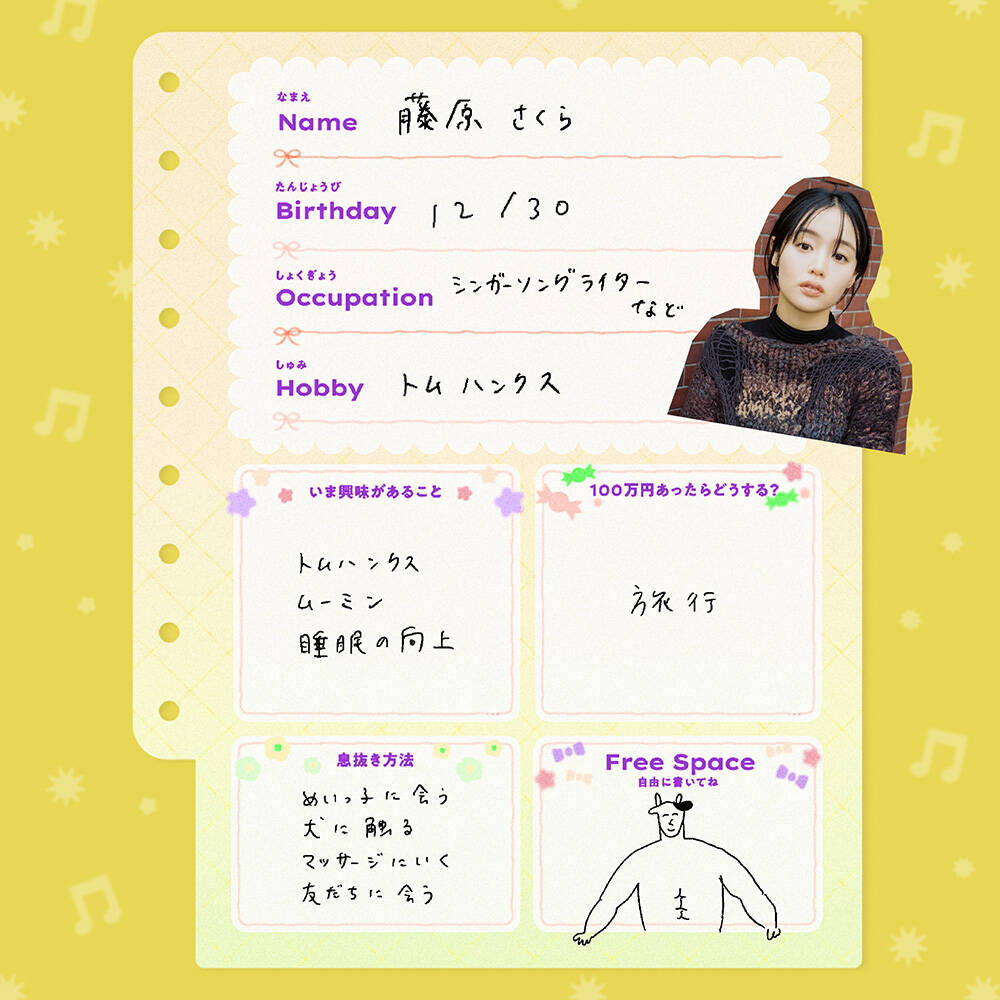 なまえ
Name 藤原 さくら
たんじょうび
Birthday 12/30
しょくぎょう
Occupation シンガーソングライター
など
しゅみ
Hobby トム ハンクス
いま興味があること
トムハンクス
ムーミン
睡眠の向上
100万円あったらどうする?
旅行
息抜き方法
めいっ子に会う
犬に触る
マッサージにいく
友だちに会う
Free Space
自由に書いてね